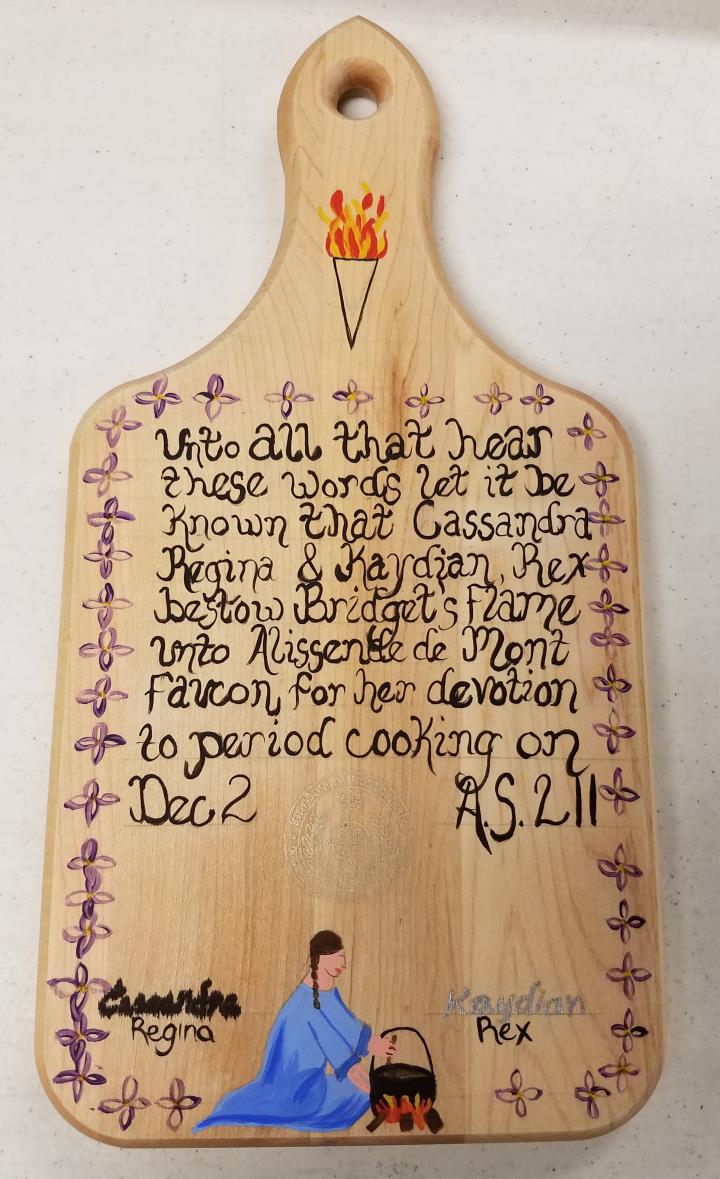 Unto all that hear
these words let it be
Known that Cassandra
Regina & Kaydian, Rex
bestow Bridget's Flame
unto Alissende de Mont
Faucon, for her devotion
to period cooking on
Dec 2 A.S. 2 11
Cassandra Kaydian
Regina Rex